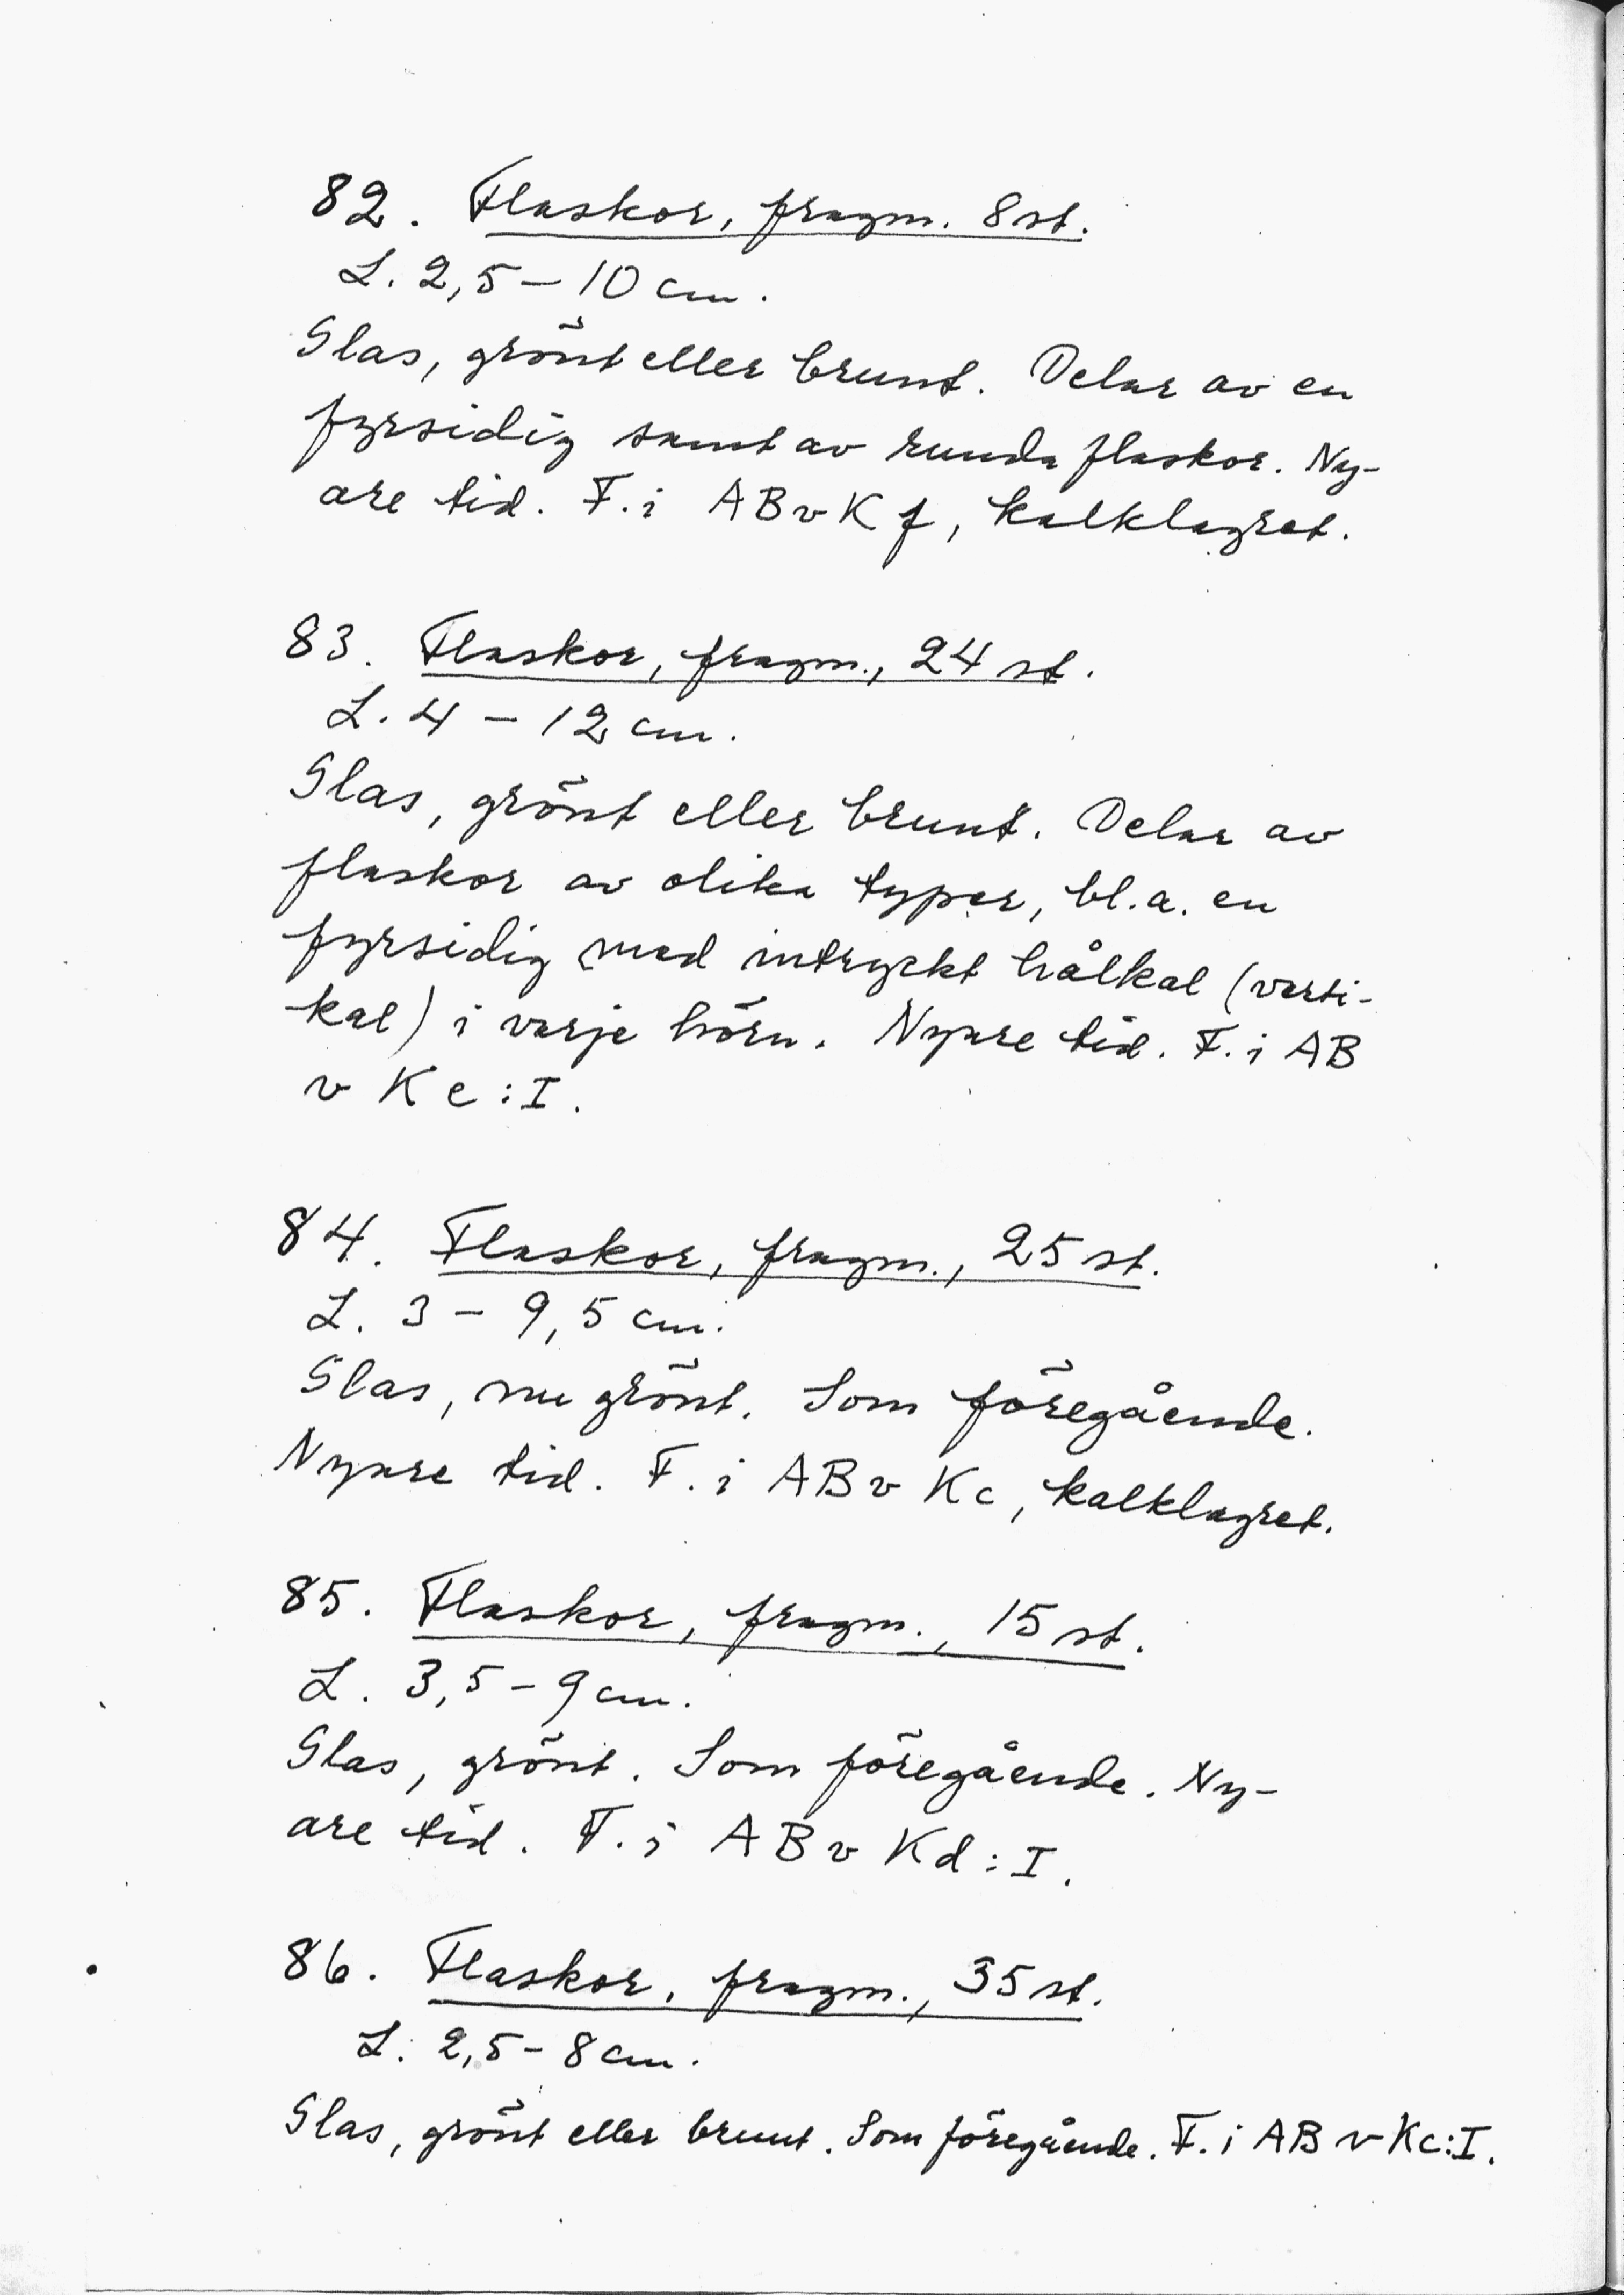 82. Flaskor, fragm. 8 st.
L. 2,5 – 10 cm.
Glas, grönt eller brunt. Delar av en
fyrsidig samt av runda flaskor. Ny-
are tid. F. i ABvKf, kalklagret.
83. Flaskor, fragm., 24 st.
L. 4 – 12 cm.
Glas, grönt eller brunt. Delar av
flaskor av olika typer, bl.a. en
fyrsidig med intryckt hålkäl (verti-
kal) i varje hörn. Nyare tid. F. i AB
v Ke:I.
84. Flaskor, fragm., 25 st.
L. 3 – 9,5 cm.
Glas, nu grönt. Som föregående.
Nyare tid. F. i ABv Kc, kalklagret.
85. Flaskor, fragm., 15 st.
L. 3,5 – 9 cm.
Glas, grönt. Som föregående. Ny-
are tid. F. i ABv Kd:I.
86. Flaskor, fragm., 35 st.
L. 2,5 – 8 cm.
Glas, grönt eller brunt. Som föregående. F. i AB v Kc:I.